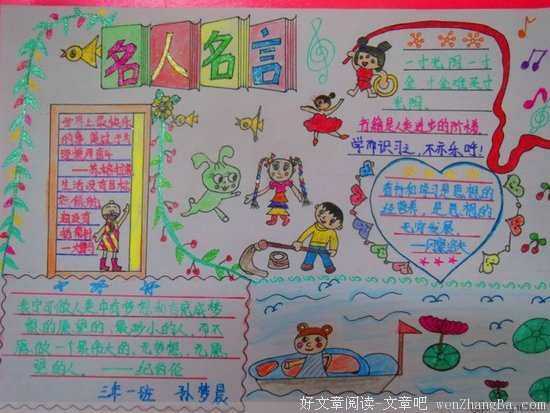 名人名言
世界上最快乐
的事,莫过于为
理想而奋斗
——苏格拉底
生活没有目标
一寸光阴一寸
金,寸金难买寸
光阴
书籍是人类进步的阶梯
学而时习之,不亦乐呼!
看书和学习是思想的
经营养,是思想的
无穷发展
——冈察洛夫
我宁可做人类中有梦想和有完成梦
想的愿望的、最渺小的人,而不
愿做一个最伟大的、无梦想、无愿
望的人。——纪伯伦
三年一班 孙梦晨
好文章阅读-文章吧 wenZhangBa.com